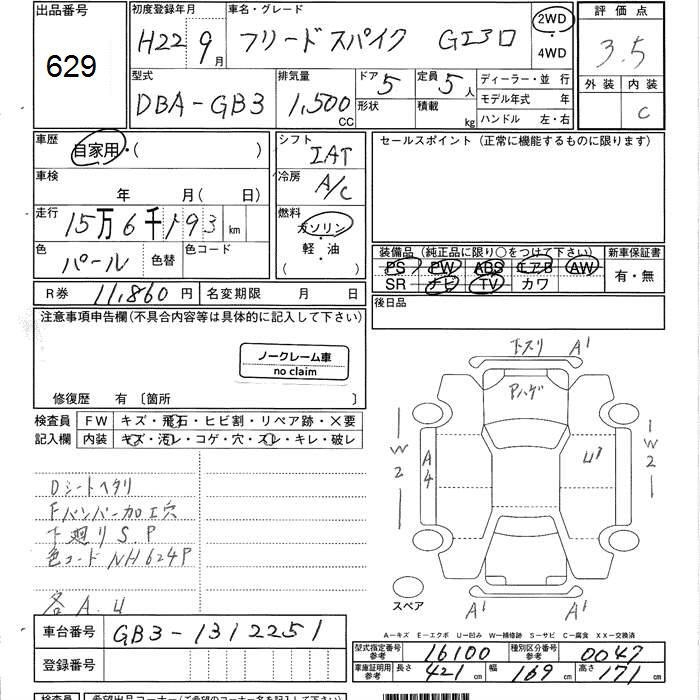 出品番号
629
初度登録年月
H22 9月
車名・グレード
フリードスパイク Gエアロ
2WD
・
4WD
評価点
3.5
外装 内装
C
型式
DBA-GB3
排気量
1,500 CC
ドア 5
形状
定員 5人
積載 kg
ディーラー・並行
モデル年式 年
ハンドル 左・右
車歴
自家用・( )
車検
年 月( 日)
走行
15万6千193km
色
パール
色替
色コード
シフト
IAT
冷房
A/C
燃料
ガソリン
・
軽・油
( )
セールスポイント(正常に機能するものに限ります)
装備品(純正品に限り○をつけて下さい)
PS PW ABS エアB AW
SR ナビ TV カワ
新車保証書
有・無
後日品
R券 11,860円
名変期限 月 日
注意事項申告欄(不具合内容等は具体的に記入して下さい)
ノークレーム車
no claim
修復歴 有〔箇所 〕
検査員
記入欄
FW キズ・飛石・ヒビ割・リペア跡・×要
内装 キズ・汚レ・コゲ・穴・スレ・キレ・破レ
Dシートヘタリ
Fバンパー加工穴
下廻りS.P
色コードNH624P
各A.U
下スリ A1
Aハゲ
W2
A4
U3
W2
スペア
A1 A1
A-キズ E-エクボ U-凹み W-補修跡 S-サビ C-腐食 XX-交換済
車台番号 GB3-1312251
登録番号
型式指定番号
参考
16100
種別区分番号
参考
0047
車庫証明用
参考
長さ 421cm 幅 169cm 高さ 171cm
検査員 希望出品コーナー(ご希望のコーナー名を記入して下さい)